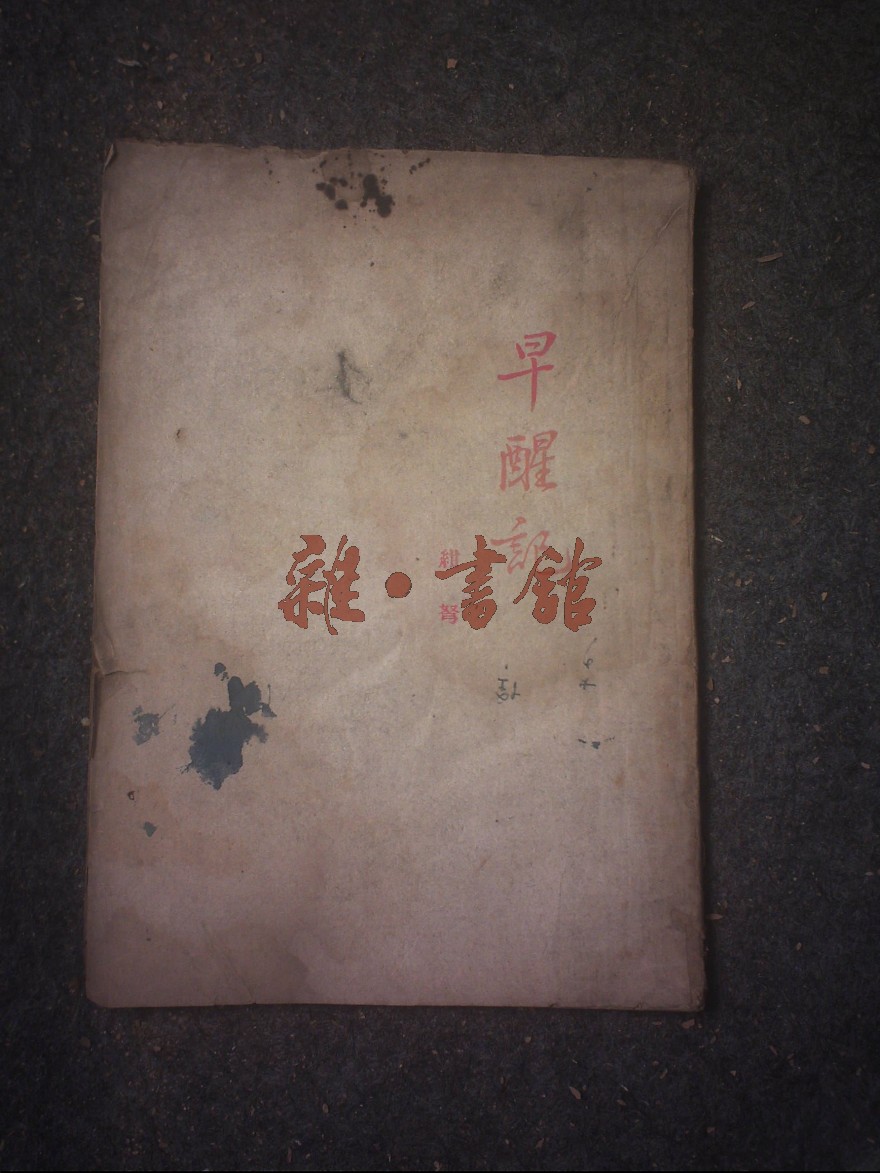 早醒記
紺弩
雜·書館